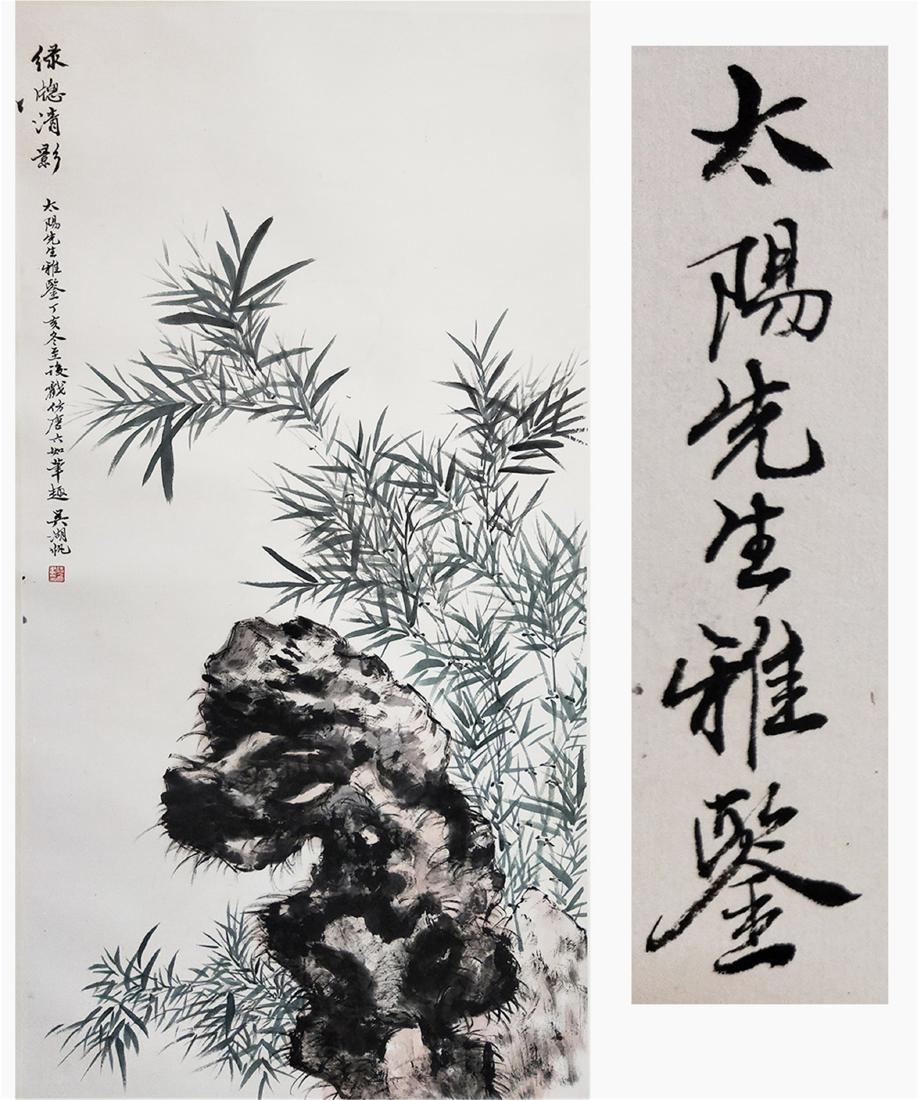 绿窓清影
太陽先生雅鑒丁亥冬至後戲仿唐六如筆趣 吴湖帆
太陽先生雅鑒